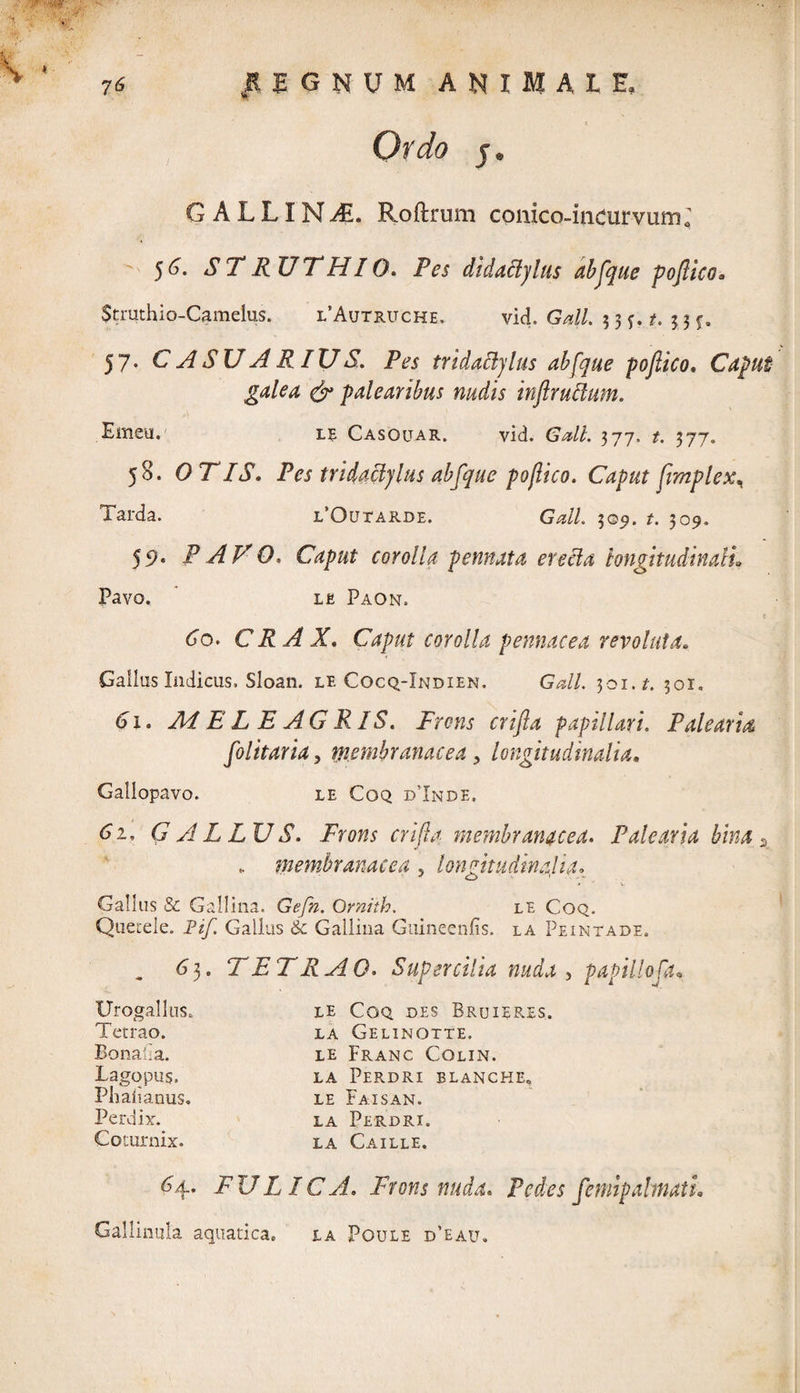 76 REGNUM ANIMALE,
Ordo 5.
GALLINÆ. Roſtrum conico-incurvum.
56. STRUTHIO. Pes didactylus abſque poſtico.
Struthio-Camelus. L'AUTRUCHE. vid. Gall. 335. t. 335.
57. CASUARIUS. Pes tridactylus abſque poſtico. Caput
galea & palearibus nudis inſtructum.
Emeu. LE CASOUAR. vid. Gall. 377. t. 377.
58. OTIS. Pes tridactylus abſque poſtico. Caput ſimplex.
Tarda. L'OUTARDE. Gall. 309. t. 309.
59. PAVO. Caput corolla pennata erecta longitudinali.
Pavo. LE PAON.
60. CRAX. Caput corolla pennacea revoluta.
Gallus Indicus. Sloan. LE COCQ-INDIEN. Gall. 301. t. 301.
61. MELEAGRIS. Frons criſta papillari. Palearia
ſolitaria, membranacea, longitudinalia.
Gallopavo. LE COQ D'INDE.
62. GALLUS. Frons criſta membranacea. Palearia bina,
membranacea, longitudinalia.
Gallus & Gallina. Geſn. Ornith. LE COQ.
Quetele. Piſ. Gallus & Gallina Guineenſis. LA PEINTADE.
63. TETRAO. Supercilia nuda, papilloſa.
Urogallus. LE COQ DES BRUIERES.
Tetrao. LA GELINOTTE.
Bonaſia. LE FRANC COLIN.
Lagopus. LA PERDRI BLANCHE.
Phaſianus. LE FAISAN.
Perdix. LA PERDRI.
Coturnix. LA CAILLE.
64. FULICA. Frons nuda. Pedes ſemipalmati.
Gallinula aquatica. LA POULE D'EAU.